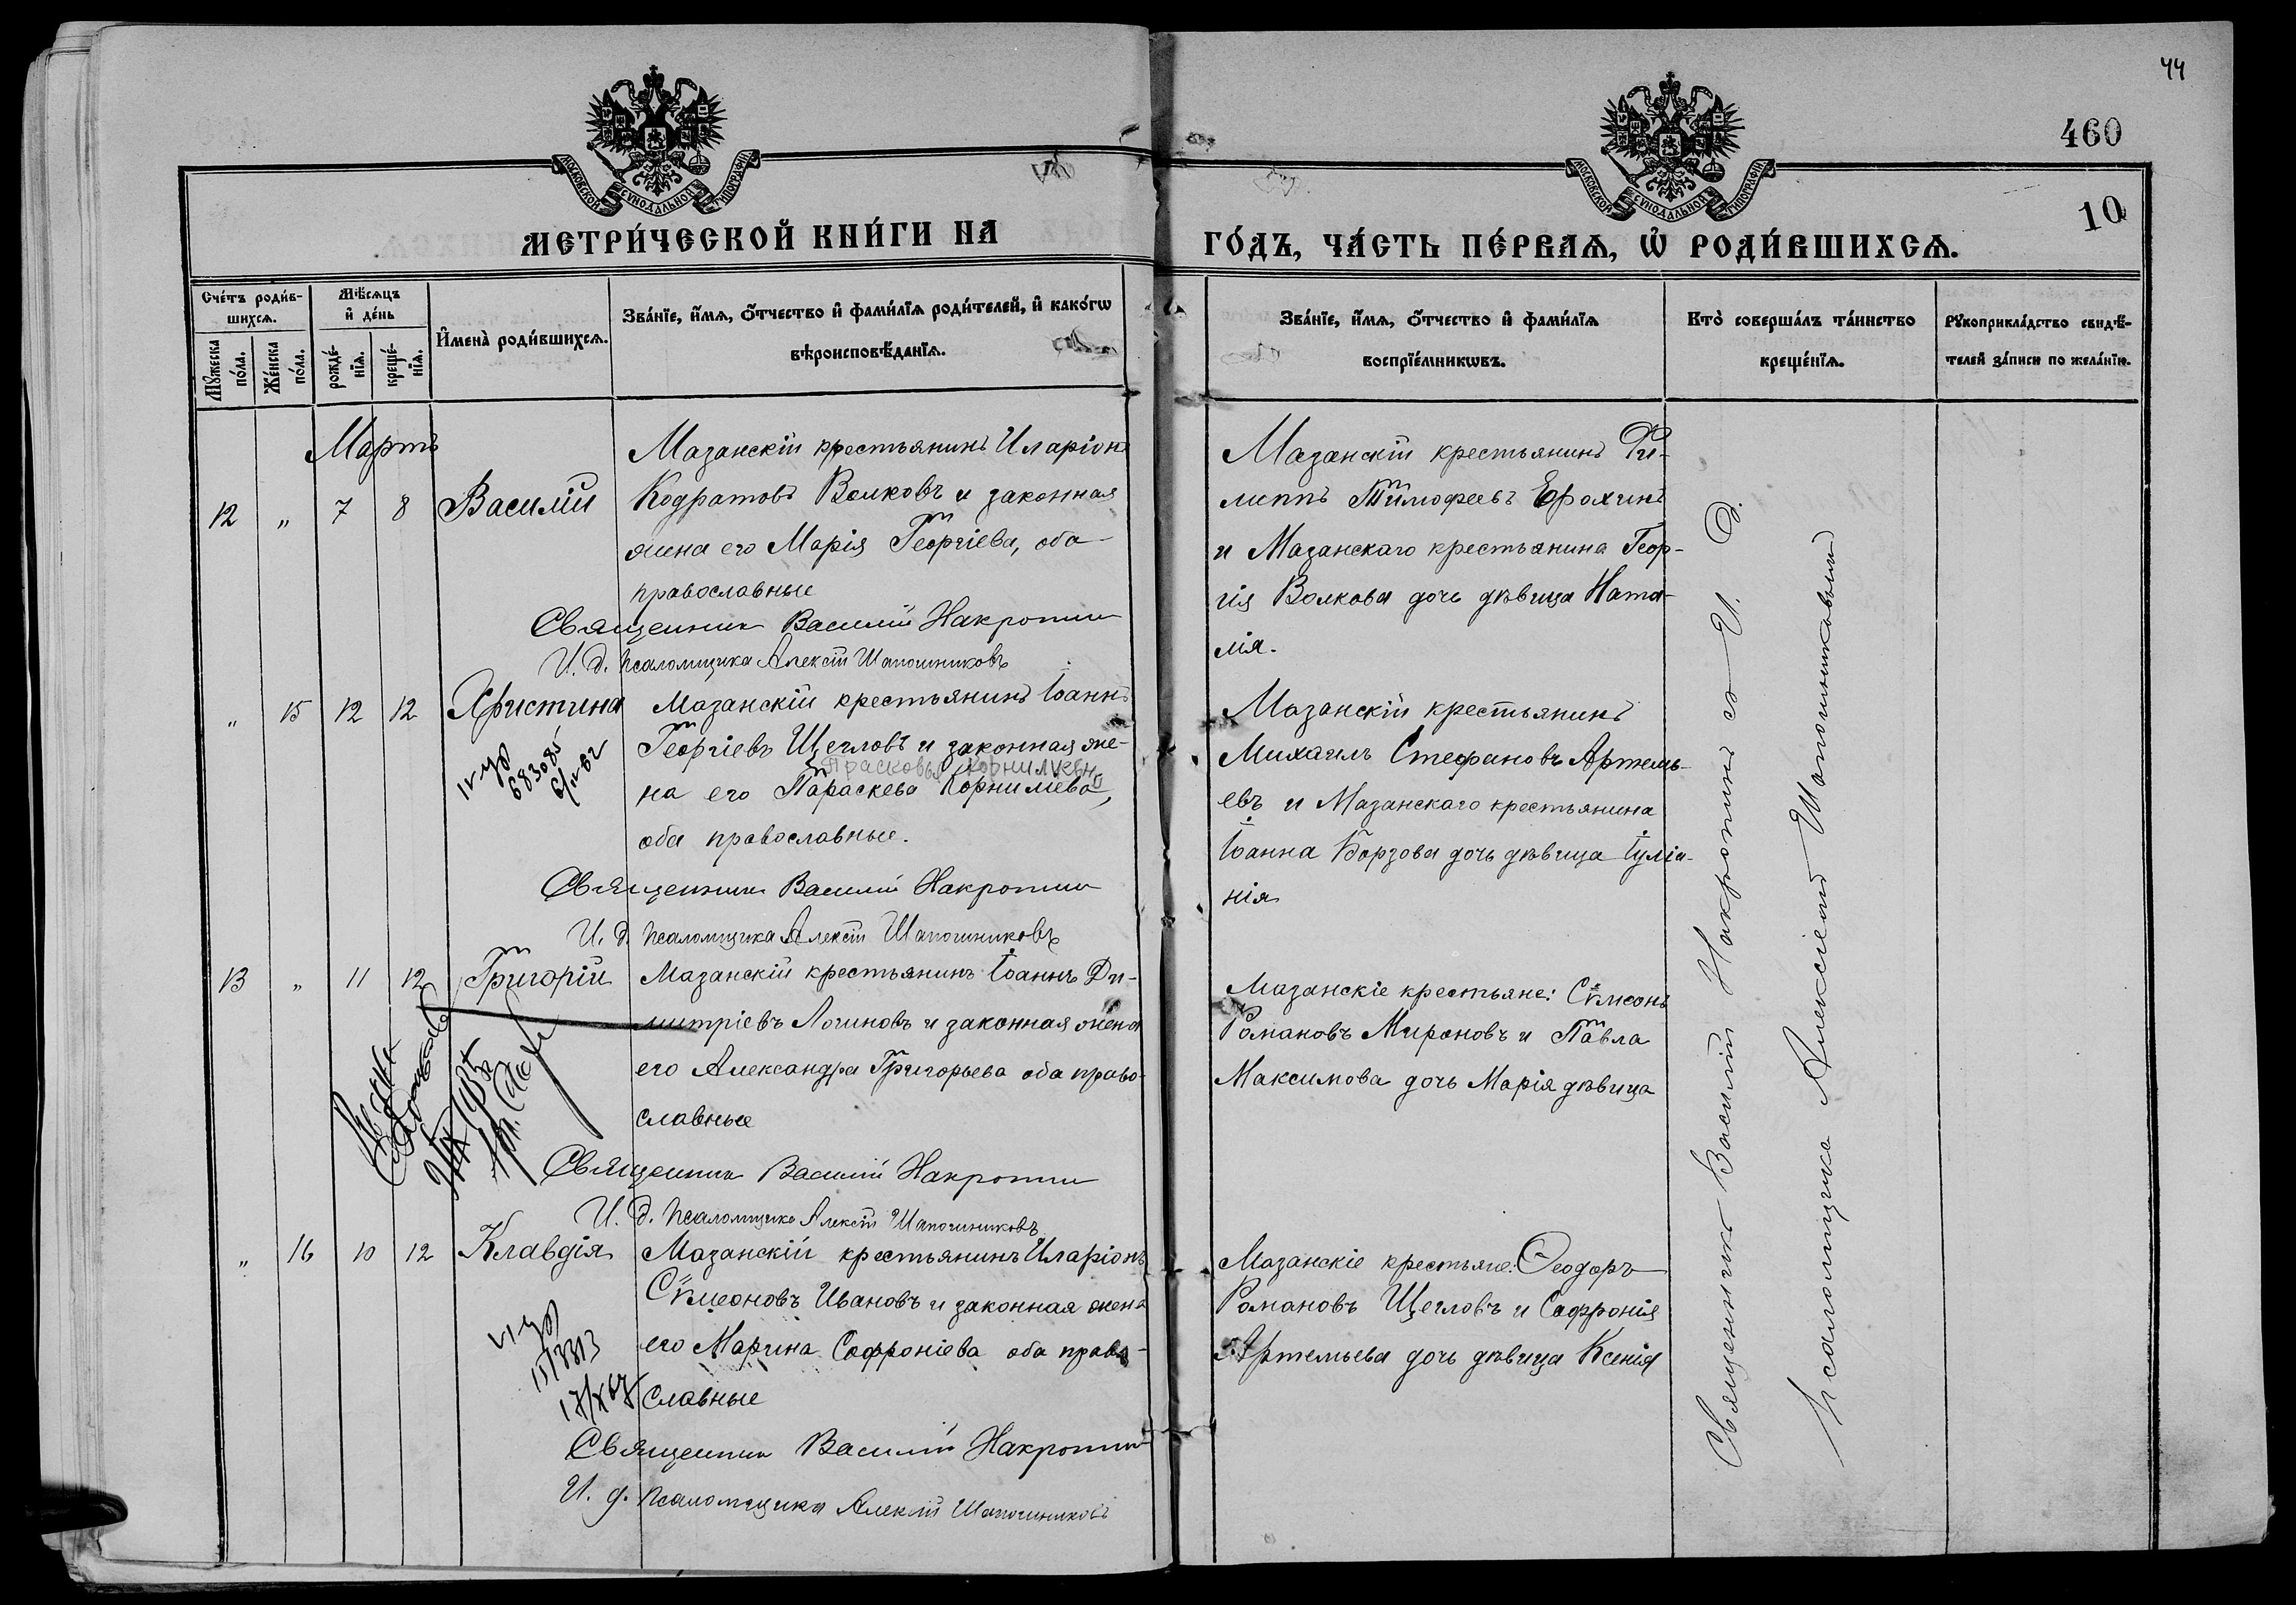 44
460
10
МОСКОВСКОЙ СѴНОДАЛЬНОЙ ТИПОГРАФІИ
МОСКОВСКОЙ СѴНОДАЛЬНОЙ ТИПОГРАФІИ
МЕТРИ́ЧЕСКОЙ КНИ́ГИ НА
ГО́ДЪ, ЧА́СТЬ ПЕ́РВАѦ, Ѡ҆ РОДИ́ВШИХСѦ.
Сче́тъ роди́в-
шихсѧ.
Мꙋ́жеска
по́ла.
Же́нска
по́ла.
Мѣ́сѧцъ
и҆ де́нь
рожде́-
нїѧ.
креще́-
нїѧ.
И҆мена̀ роди́вшихсѧ.
Зва́нїе, и҆́мѧ, ѻ҆́тчество и҆ фами́лїѧ роди́телей, и҆ како́гѡ
вѣроисповѣ́данїѧ.
Зва́нїе, и҆́мѧ, ѻ҆́тчество и҆ фами́лїѧ
воспрїе́мникѡвъ.
Кто̀ соверша́лъ та́инство
креще́нїѧ.
Рꙋкоприкла́дство свидѣ́-
телей за́писи по жела́нїю.
Мартъ
12 " 7 8 Василій
Мазанскій крестьянинъ Иларіонъ
Кодратовъ Волковъ и законная
жена его Марія Георгіева, оба
православные
Священникъ Василій Накропинъ
И. д. псаломщика Алексѣй Шапошниковъ
Мазанскій крестьянинъ Фи-
липпъ Тимофеевъ Ерохинъ
и Мазанскаго крестьянина Геор-
гія Волкова дочь дѣвица Ната-
лія.
" 15 12 12 Христина
Мазанскій крестьянинъ Іоаннъ
Георгіевъ Щегловъ и законная же-
Прасковья Корнилиевна
на его Параскева Корнилiева,
оба православные.
Священникъ Василій Накропинъ
И. д. псаломщика Алексѣй Шапошниковъ
683085
Мазанскій крестьянинъ
Михаилъ Стефановъ Артемь-
евъ и Мазанскаго крестьянина
Іоанна Борзова дочь дѣвица Іуліа-
нія
13 " 11 12 Григорій
Мазанскій крестьянинъ Іоаннъ Ди-
митріевъ Логиновъ и законная жена
его Александра Григорьева оба право-
славные
Священникъ Василій Накропинъ
И. д. псаломщика Алексѣй Шапошниковъ
Мазанскіе крестьяне: Сѵмеонъ
Романовъ Мироновъ и Павла
Максимова дочь Марія дѣвица
" 16 10 12 Клавдія
Мазанскій крестьянинъ Иларіонъ
Сѵмеоновъ Ивановъ и законная жена
его Марина Софроніева оба право-
славные
Священникъ Василій Накропинъ
И. д. псаломщика Алексѣй Шапошниковъ
Мазанскіе крестьяне: Ѳеодоръ
Романовъ Щегловъ и Софронія
Артемьева дочь дѣвица Ксенія
Священникъ Василій Накропинъ съ И. Д.
Псаломщика Алексіемъ Шапошниковымъ